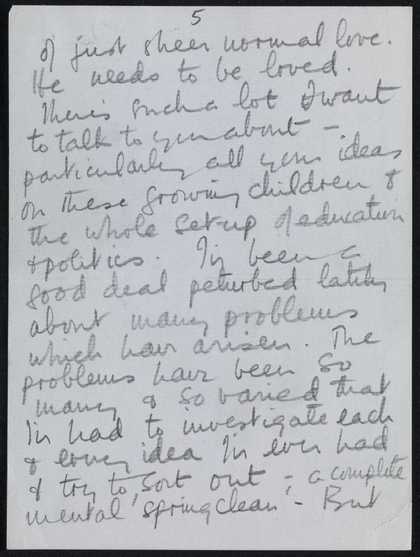 5
of just sheer normal love.
He needs to be loved.
There's such a lot I want
to talk to you about -
particularly all your ideas
on these growing children &
the whole set-up of education
& politics. I've been a
good deal peturbed lately
about many problems
which have arisen. The
problems have been so
many & so varied that
I've had to investigate each
& every idea I've ever had
& try to sort out - a complete
mental 'springclean' - But